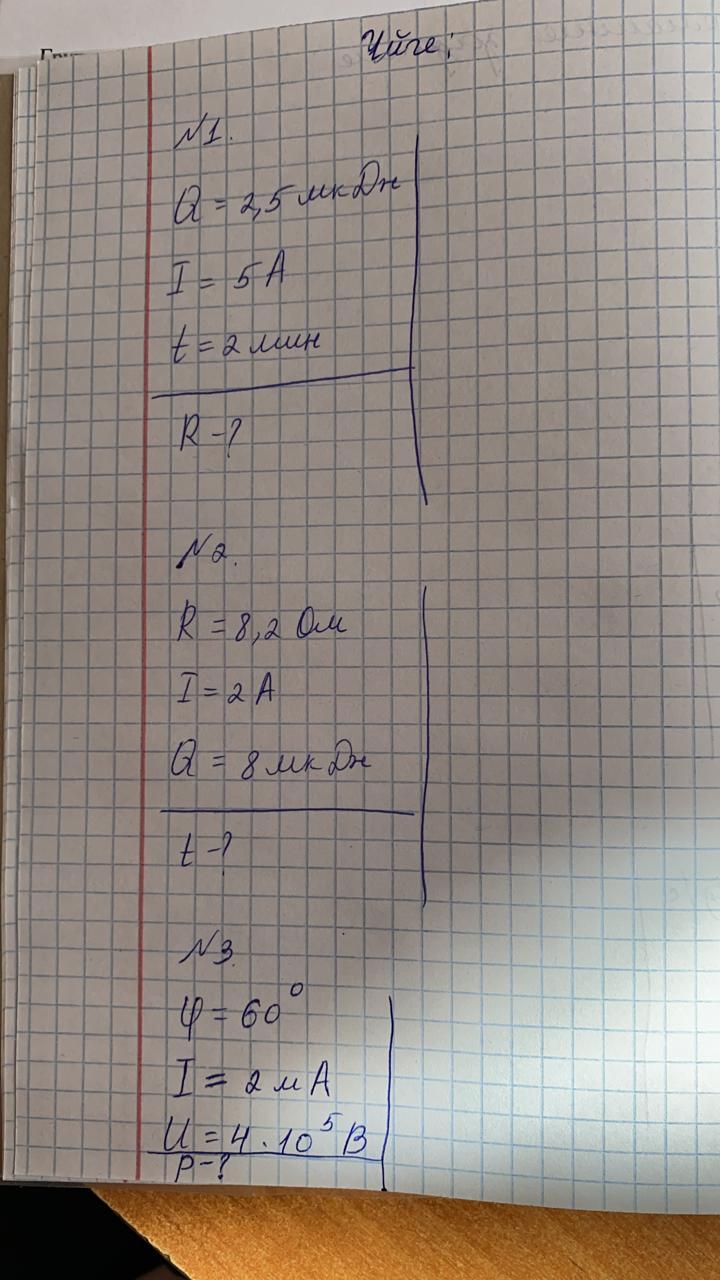 Үйге:
№1.
Q = 2,5 мкДж
I = 5 А
t = 2 мин
R - ?
№2.
R = 8,2 Ом
I = 2 А
Q = 8 мкДж
t - ?
№3.
φ = 60°
I = 2 мА
U = 4 · 10⁵ В
P - ?